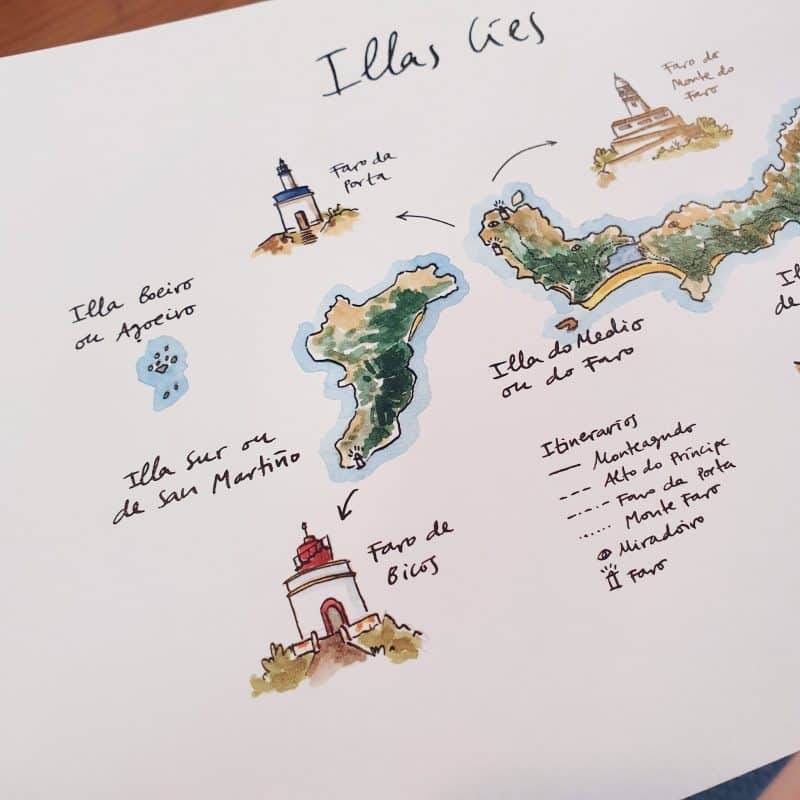 Illas Cíes
Faro do
Monte do
Faro
Faro da
Porta
Illa Boeiro
ou Agoeiro
Illa do Medio
ou do Faro
Illa Sur ou
de San Martiño
Faro de
Bicos
Itinerarios
Monteagudo
Alto do Príncipe
Faro da Porta
Monte Faro
Miradoiro
Faro
de